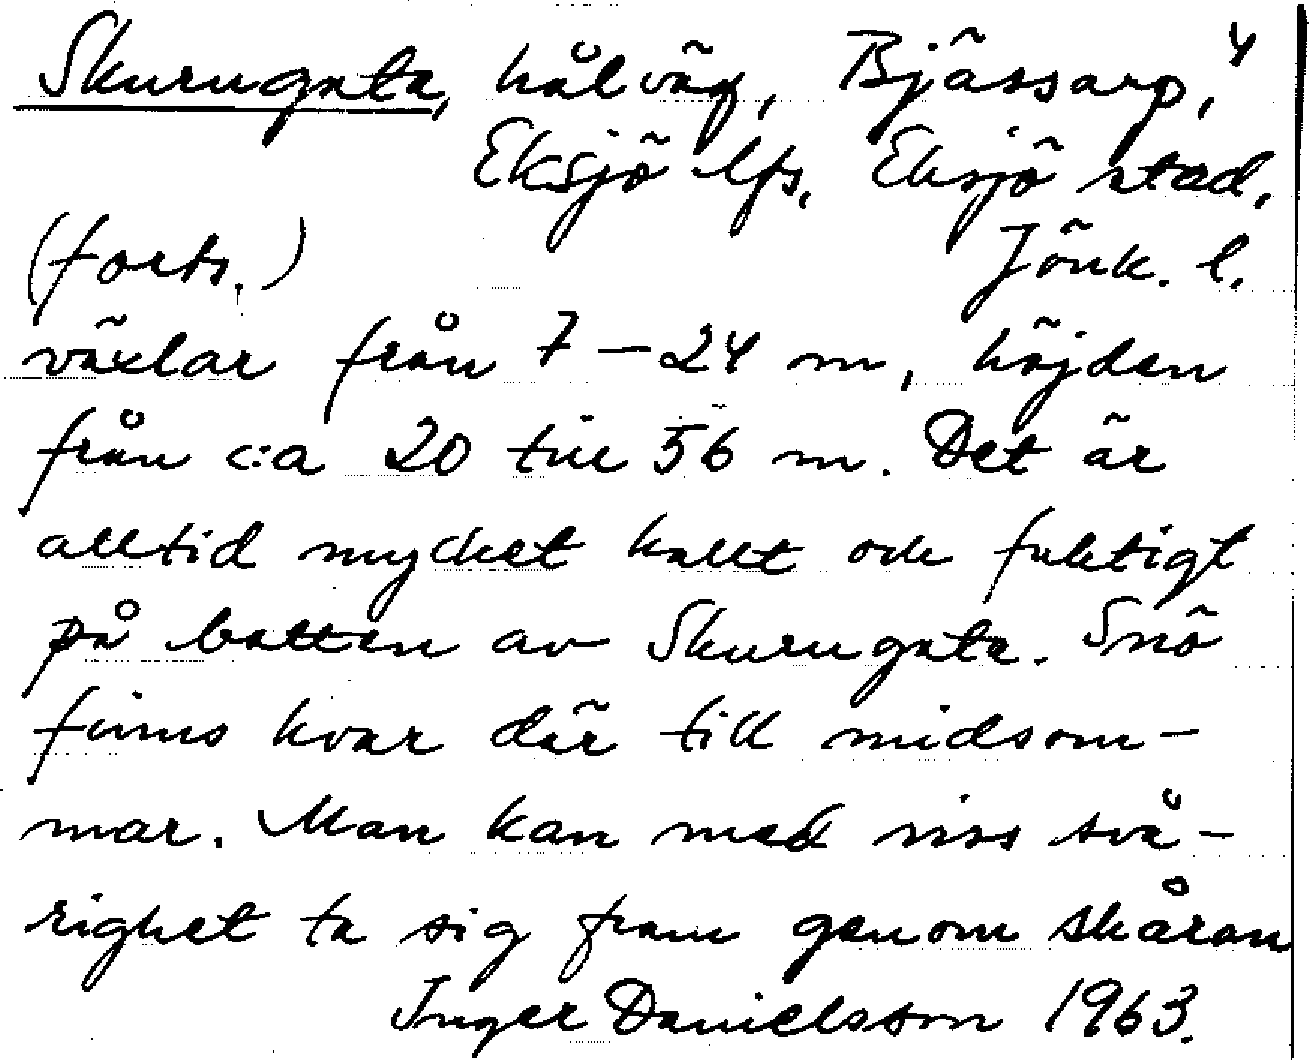 Skurugata, hålväg, Bjässarp, 4
Eksjö lfs, Eksjö stad,
(forts.) Jönk. l.
växlar från 7 – 24 m, höjden
från c:a 20 till 56 m. Det är
alltid mycket kallt och fuktigt
på botten av Skurugata. Snö
finns kvar där till midsom-
mar. Man kan med viss svå-
righet ta sig fram genom skåran
Inger Danielsson 1963.